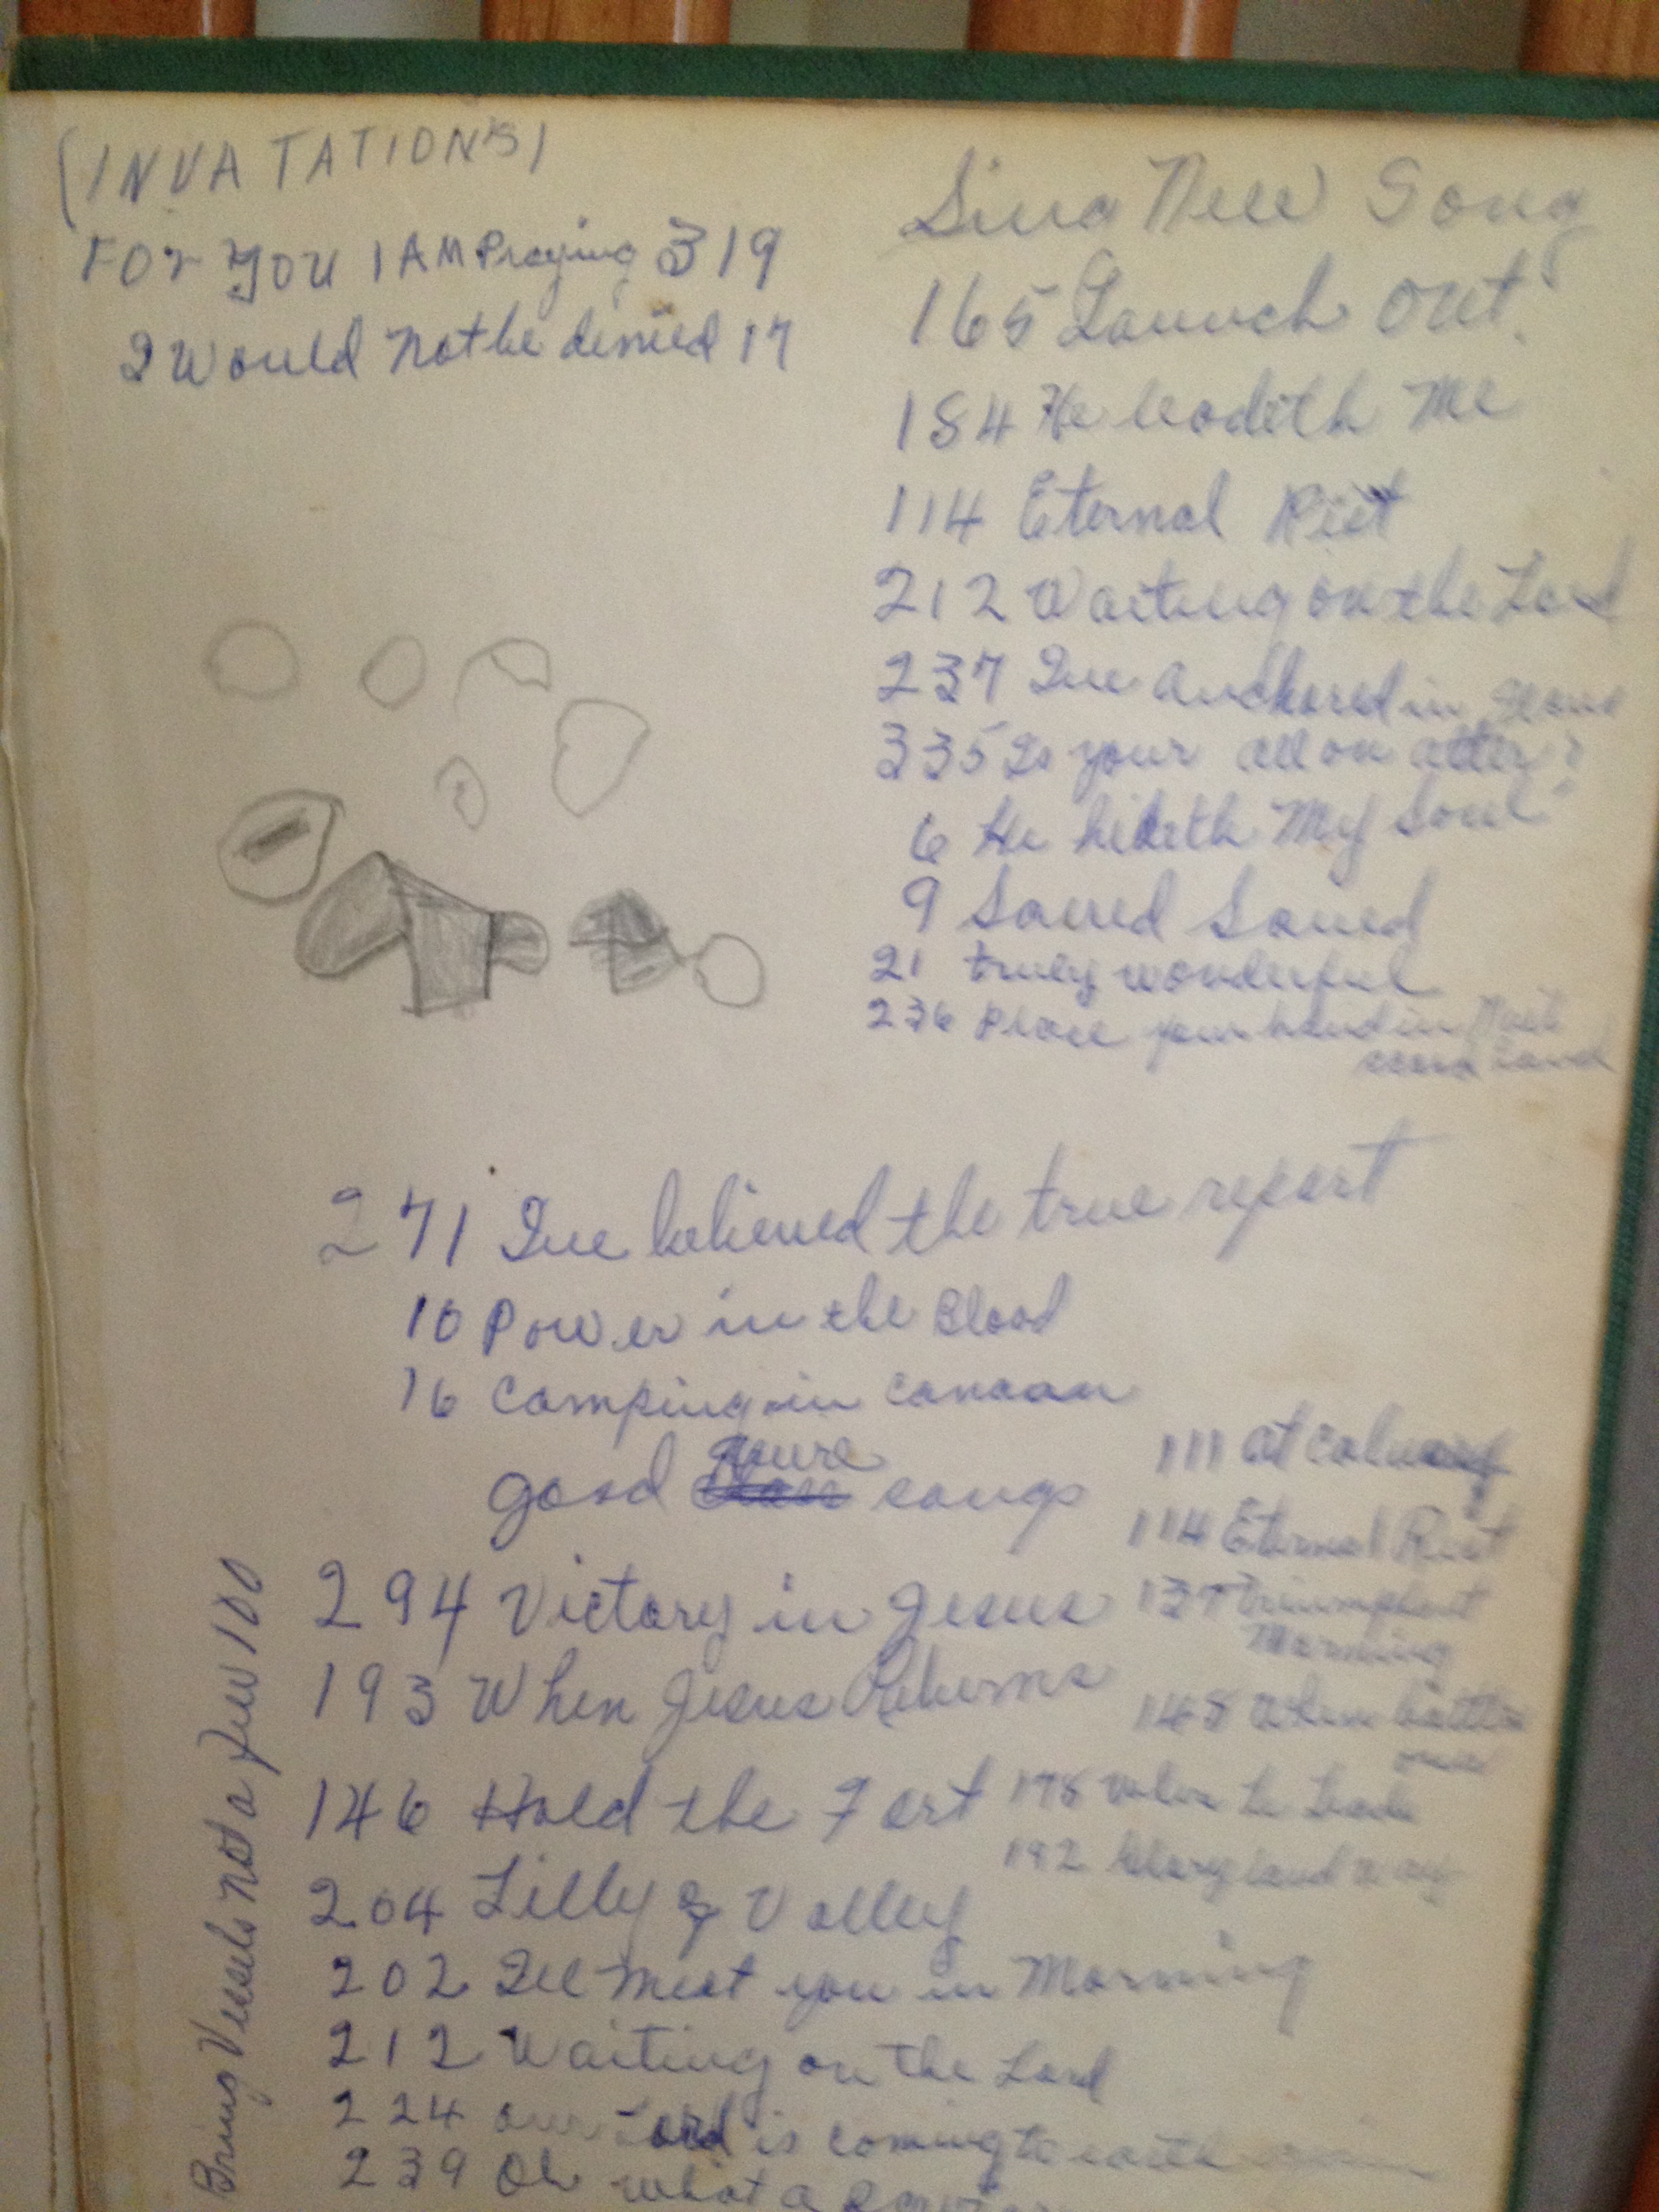 (INVATATION'S)
FOr YOU I AM Praying 319
I Would Not be denied 17
Sing New Song
165 Launch out
184 He leadeth Me
114 Eternal
212 Waiting on the Lord
237 Ive anchored in Jesus
335 Is your all on alter?
6 He hideth My Soul
9 Saved Saved
21 truly wonderful
236 Place your hand in Nail
hand
271 Ive believed the true report
10 Power in the Blood
16 Camping in canaan
good songs
294 Victory in Jesus
193 When Jesus Returns
146 Hold the Fort
204 Lilly of Valley
202 Ill meet you in Morning
212 Waiting on the Lord
224 our Lord is coming to earth
239 Oh what a
111 at calvary
114 Eternal
137 triumphant
Morning
145 When battles
over
192 Gloryland way
Bring Vessels not a few 100